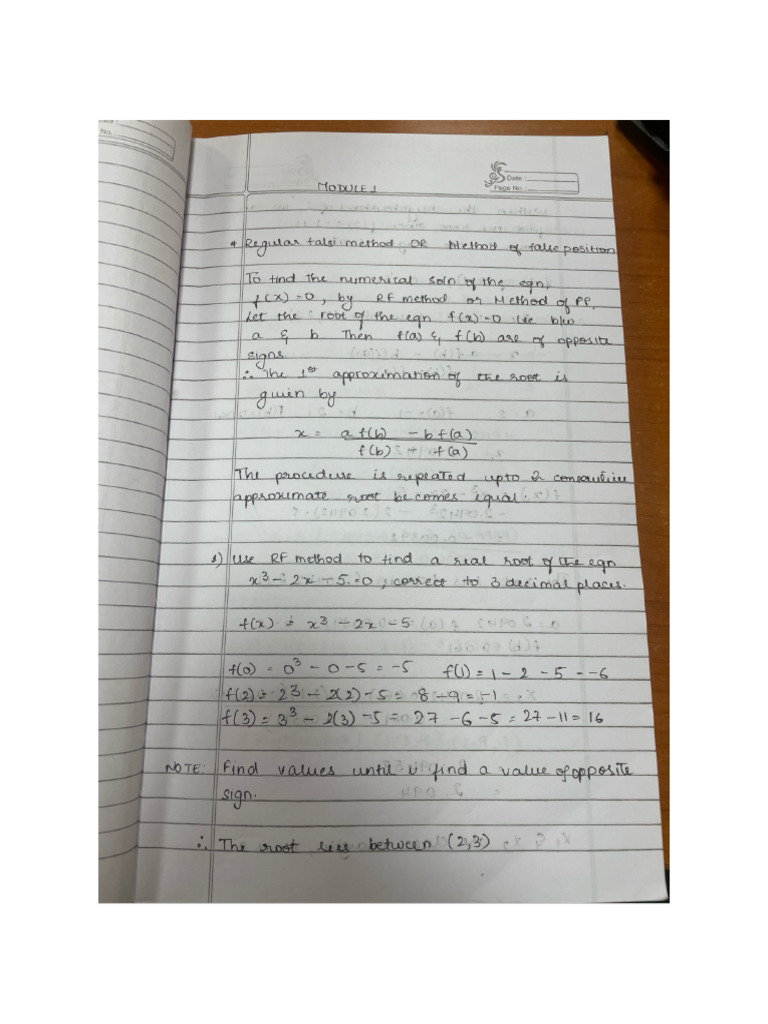 No.:
Date :
Page No.:
MODULE 1
* Regular falsi method OR Method of false position
To find the numerical soln of the eqn,
f(x) = 0, by RF method or Method of FP,
Let the root of the eqn f(x) = 0 lie b/w
a & b. Then f(a) & f(b) are of opposite
signs
∴ The 1st approximation of the root is
given by
x = a f(b) - b f(a)
f(b) - f(a)
The procedure is repeated upto 2 consecutive
approximate root becomes equal.
1) Use RF method to find a real root of the eqn
x³ - 2x - 5 = 0, correct to 3 decimal places.
f(x) = x³ - 2x - 5
f(0) = 0³ - 0 - 5 = -5 f(1) = 1 - 2 - 5 = -6
f(2) = 2³ - 2(2) - 5 = 8 - 9 = -1
f(3) = 3³ - 2(3) - 5 = 27 - 6 - 5 = 27 - 11 = 16
NOTE: Find values until u find a value of opposite
sign.
∴ The root lies between (2,3)